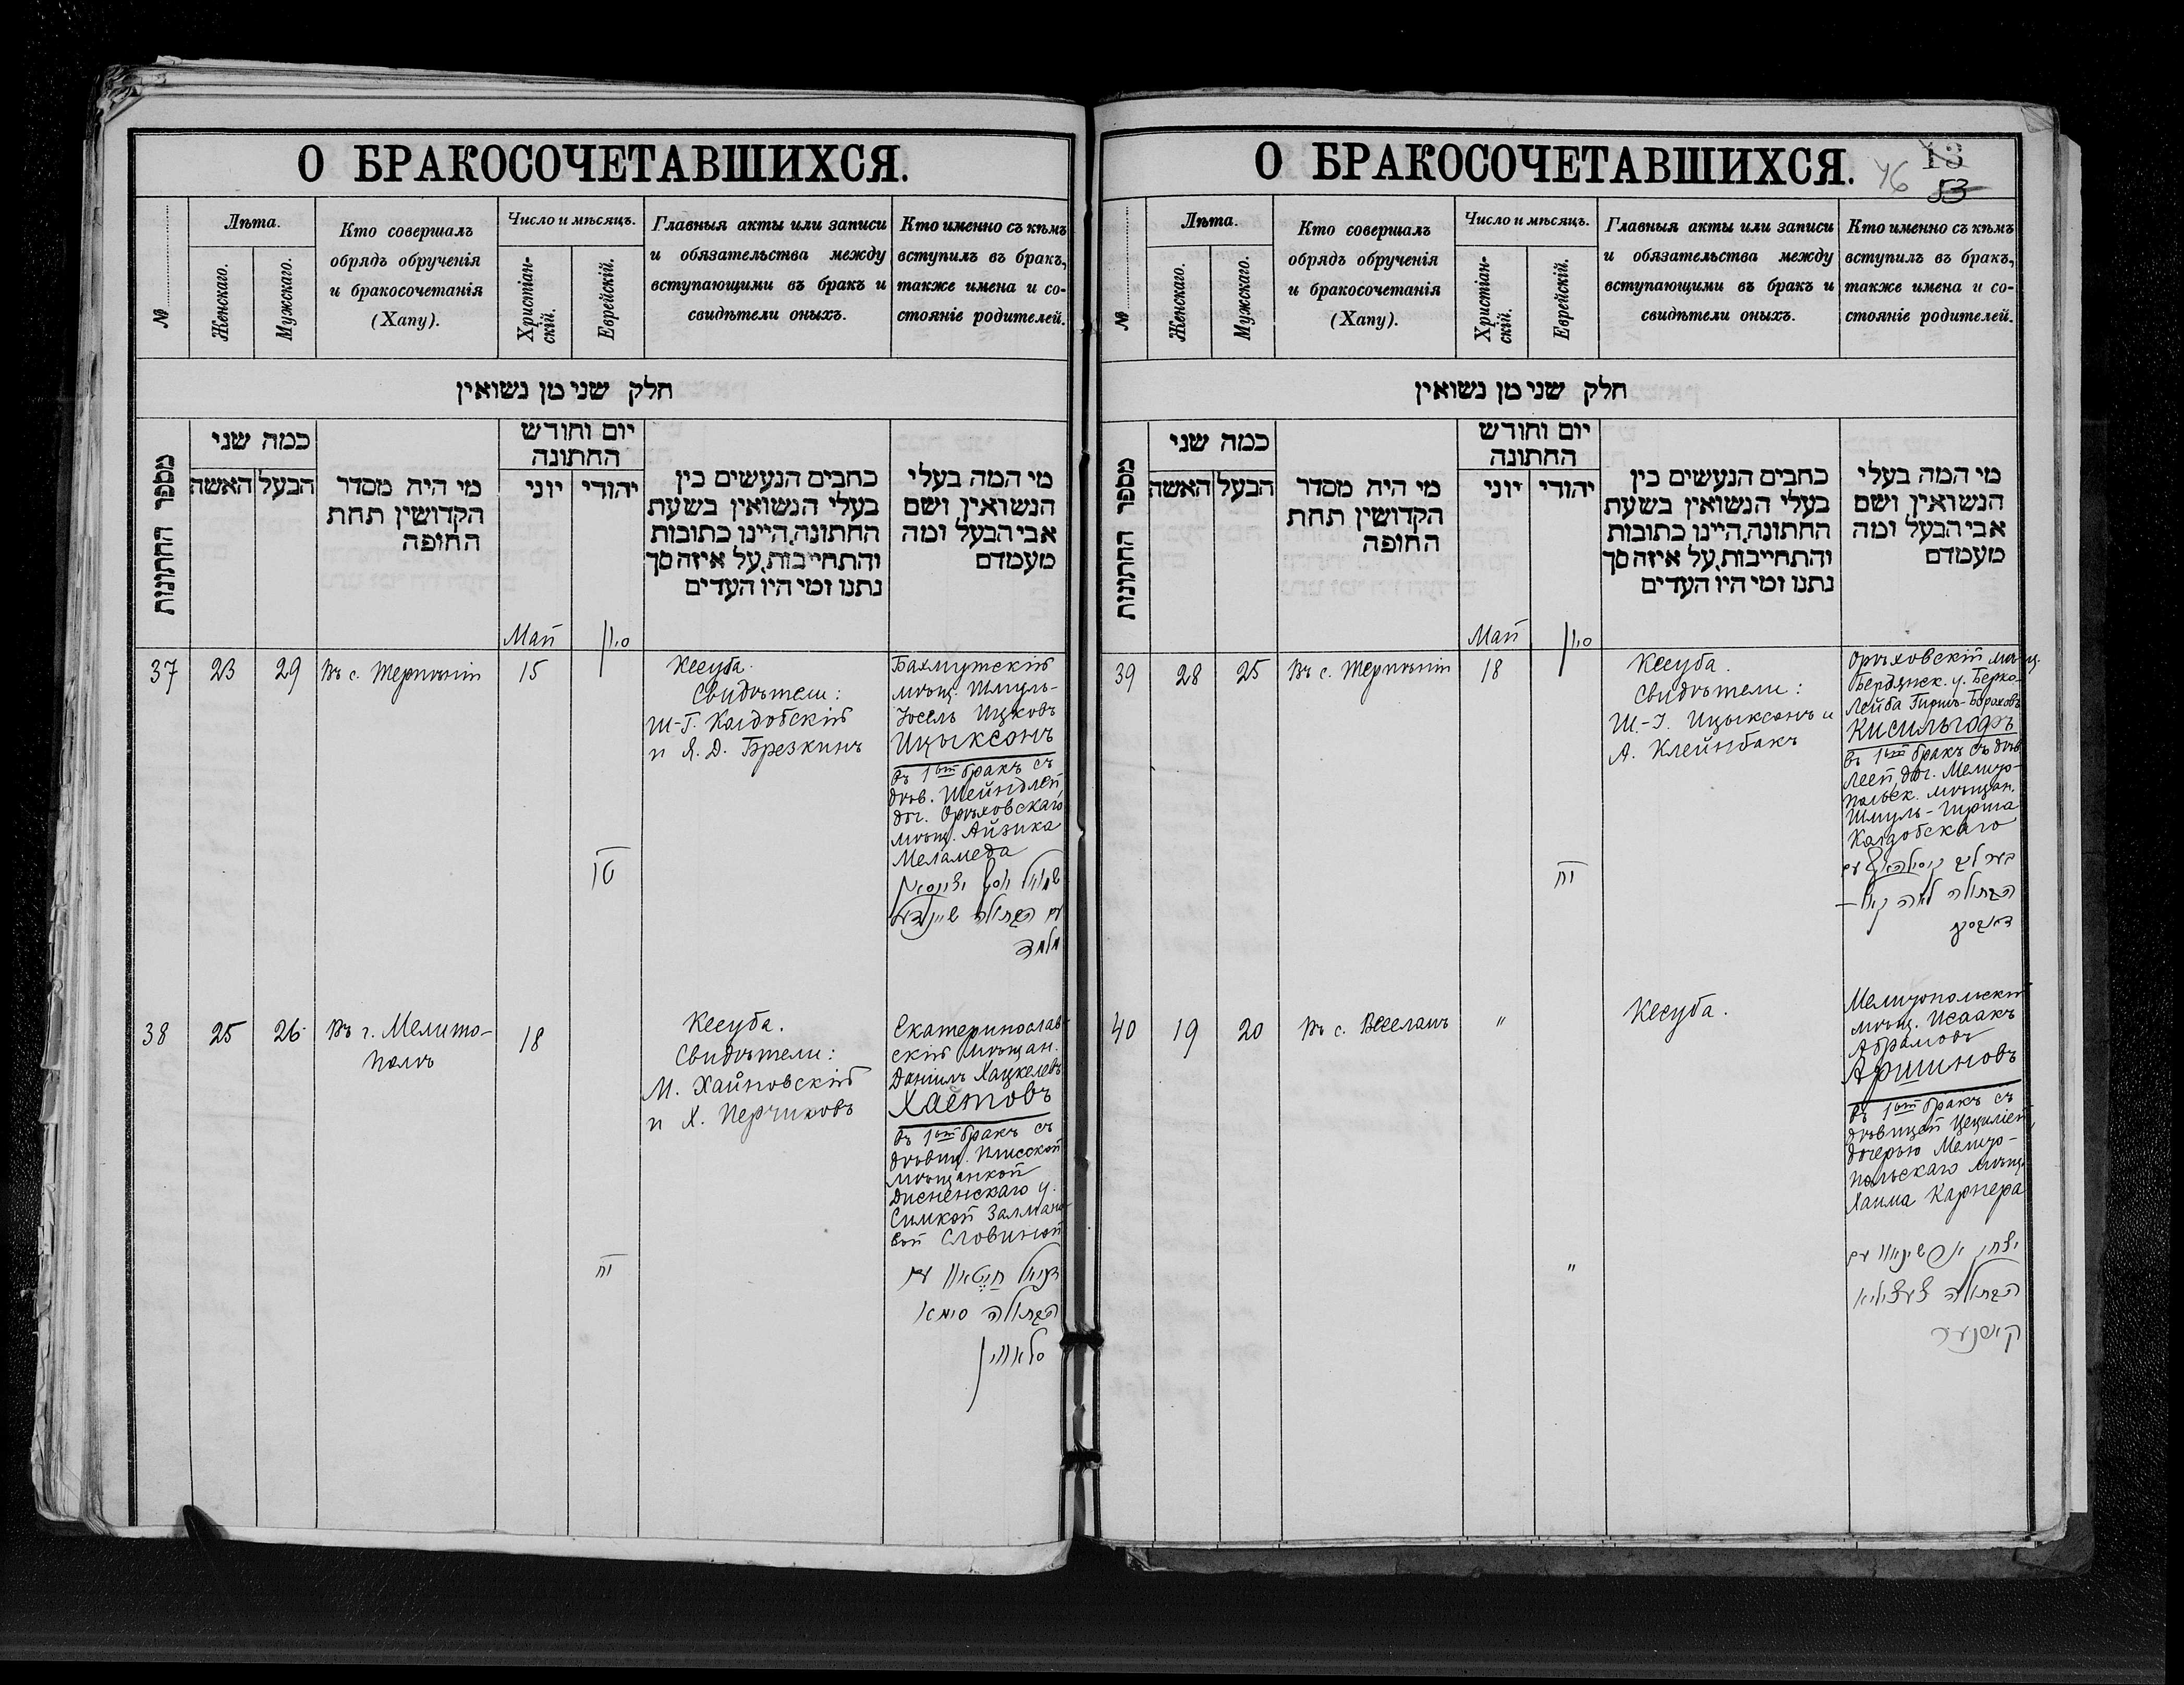 О БРАКОСОЧЕТАВШИХСЯ.
№
Лѣта.
Женскаго.
Мужскаго.
Кто совершалъ
обрядъ обрученія
и бракосочетанія
(Хапу).
Число и мѣсяцъ.
Христіан-
скій.
Еврейскій.
Главныя акты или записи
и обязательства между
вступающими въ бракъ и
свидѣтели оныхъ.
Кто именно съ кѣмъ
вступилъ въ бракъ,
также имена и со-
стояніе родителей.
חלק שני מן נשואין
מספר החתונות
כמה שני
האשה
הבעל
מי היה מסדר
הקדושין תחת
החופה
יום וחודש
החתונה
יוני
יהודי
כתבים הנעשים בין
בעלי הנשואין בשעת
החתונה, היינו כתובות
והתחייבות, על איזה סך
נתנו ומי היו העדים
מי המה בעלי
הנשואין ושם
אבי הבעל ומה
מעמדם
Май
סיון
37
23
29
Въ с. Терпѣніи
15
טו
Кесуба.
Свидѣтели:
Ш-Г. Калдобскій
и Я. Д. Брезкинъ
Бахмутскій
мѣщ. Шмуль-
Іосель Ицковъ
Ицыксонъ
въ 1ый бракъ съ
дѣв. Шейндлей,
доч. Орѣховскаго
мѣщ. Айзика
Меламеда
שמואל יוסף יציקסאן
עם הבתולה שיינדל
מלמד
38
25
26
Въ г. Мелито-
полѣ
18
יח
Кесуба.
Свидѣтели:
М. Хайновскій
и Х. Перчиковъ
Екатеринослав-
скій мѣщан.
Даніилъ Хацкелевъ
Хаетовъ
въ 1ый бракъ съ
дѣвиц. Плисской
мѣщанкой
Дисненскаго у.
Симкой Залмано-
вой Словиной
דניאל חייטאוו עם
הבתולה סימא
סלאווין
О БРАКОСОЧЕТАВШИХСЯ.
13
46
53
№
Лѣта.
Женскаго.
Мужскаго.
Кто совершалъ
обрядъ обрученія
и бракосочетанія
(Хапу).
Число и мѣсяцъ.
Христіан-
скій.
Еврейскій.
Главныя акты или записи
и обязательства между
вступающими въ бракъ и
свидѣтели оныхъ.
Кто именно съ кѣмъ
вступилъ въ бракъ,
также имена и со-
стояніе родителей.
חלק שני מן נשואין
מספר החתונות
כמה שני
האשה
הבעל
מי היה מסדר
הקדושין תחת
החופה
יום וחודש
החתונה
יוני
יהודי
כתבים הנעשים בין
בעלי הנשואין בשעת
החתונה, היינו כתובות
והתחייבות, על איזה סך
נתנו ומי היו העדים
מי המה בעלי
הנשואין ושם
אבי הבעל ומה
מעמדם
Май
סיון
39
28
25
Въ с. Терпѣніи
18
יח
Кесуба.
Свидѣтели:
Ш-І. Ицыксонъ и
А. Клейнбакъ
Орѣховскій мѣщ.
Бердянск. у. Берко-
Лейба Гирш-Бораховъ
Кисильгофъ
въ 1ый бракъ съ дѣв.
Леей, доч. Мелито-
польск. мѣщан.
Шмуль-Гирша
Калдобскаго
בער ליב קיסילהאף עם
הבתולה לאה קאל-
דאבסקי
40
19
20
Въ с. Веселомъ
"
"
Кесуба.
Мелитопольскій
мѣщ. Исаакъ
Абрамовъ
Аршиновъ
въ 1ый бракъ съ
дѣвицей Цециліей,
дочерью Мелито-
польскаго мѣщ.
Хаима Карнера
יצחק ארשינאוו עם
הבתולה צעציליא
קארנער